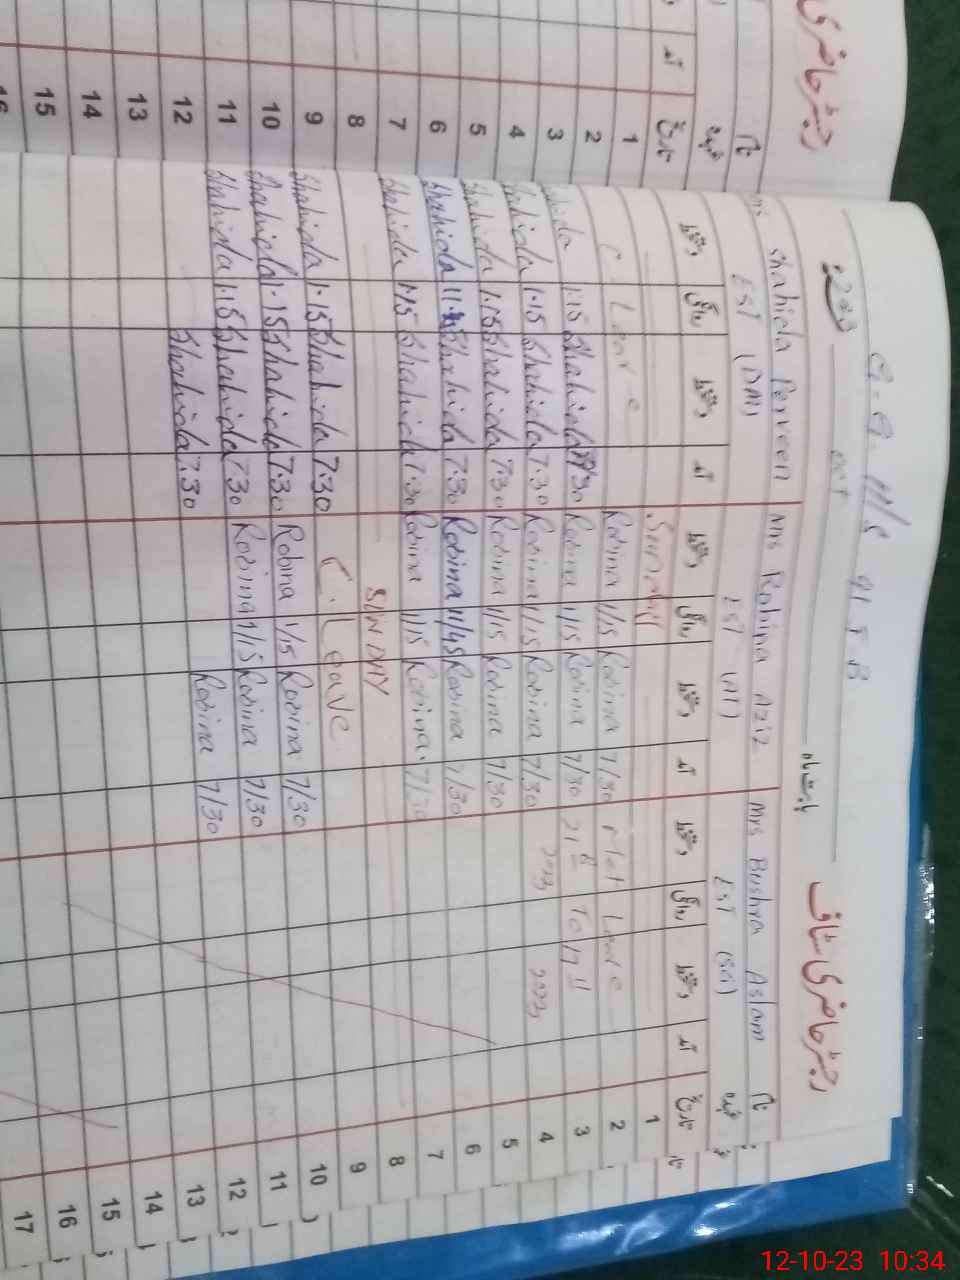 رجسٹر حاضری سٹاف
OCT
Mrs Shahida Perveen Mrs Robina Aziz Mrs Bushra Aslam نام
EST (DM) EST (AT) EST (Sci) عہدہ
دستخط روانگی دستخط آمد دستخط روانگی دستخط آمد دستخط روانگی دستخط آمد تاریخ
1 Sunday 1
2 C Leave Robina 1/15 Robina 7/30 Met Leave 2
3 Shahida 1:15 Shahida 7:30 Robina 1/15 Robina 7/30 To 3
4 Shahida 1:15 Shahida 7:30 Robina 1/15 Robina 7/30 4
5 Shahida 1:15 Shahida 7:30 Robina 1/15 Robina 7/30 5
6 Shahida Shahida 7:30 Robina 11/45 Robina 7/30 6
7 Shahida 1:15 Shahida 7:30 Robina 1/15 Robina 7/30 7
8 SUNDAY 8
9 Shahida 1:15 Shahida 7:30 C. Leave 9
10 Shahida 1:15 Shahida 7:30 Robina 1/15 Robina 7/30 10
11 Shahida 1:15 Shahida 7:30 Robina 1/15 Robina 7/30 11
12 Shahida 7:30 Robina 7/30 12
13 13
14 14
15 15
16 16
17
رجسٹر حاضری
نام
عہدہ
تاریخ
آمد
12-10-23 10:34